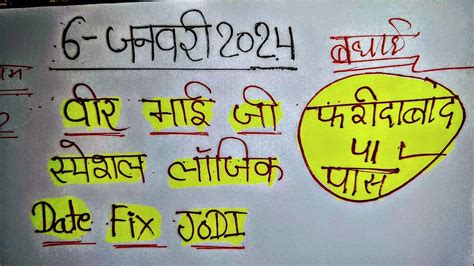 6-जनवरी 2024
बधाई
वीर भाई जी
स्पेशल लॉजिक
Date Fix JODI
फरीदाबाद
पास